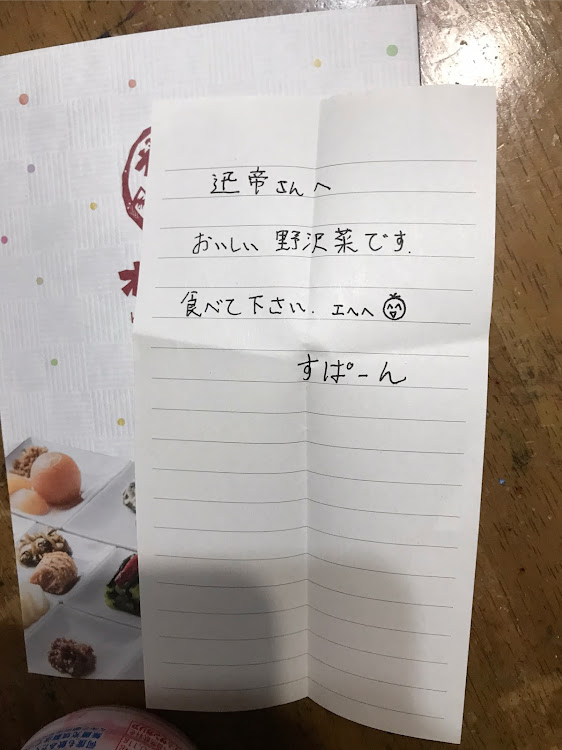 迅帝さんへ
おいしい野沢菜です.
食べて下さい. エヘヘ
すぱーん